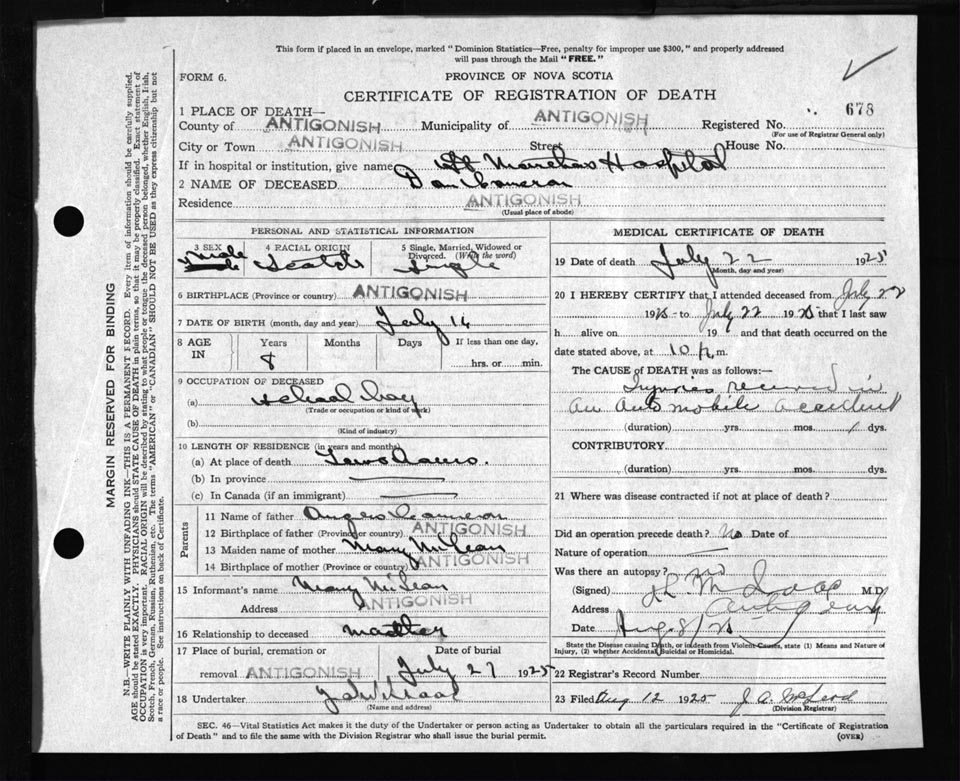 This form if placed in an envelope, marked "Dominion Statistics—Free, penalty for improper use $300," and properly addressed
will pass through the Mail "FREE."
FORM 6.
PROVINCE OF NOVA SCOTIA
CERTIFICATE OF REGISTRATION OF DEATH
1 PLACE OF DEATH—
678
County of ANTIGONISH Municipality of ANTIGONISH Registered No.
(For use of Registrar General only)
City or Town ANTIGONISH Street House No.
If in hospital or institution, give name Hospital
2 NAME OF DECEASED Dan Cameron
Residence ANTIGONISH
(Usual place of abode)
PERSONAL AND STATISTICAL INFORMATION
3 SEX 4 RACIAL ORIGIN 5 Single, Married, Widowed or
Divorced. (Write the word)
Male Scotch Single
6 BIRTHPLACE (Province or country) ANTIGONISH
7 DATE OF BIRTH (month, day and year) July 14
8 AGE IN Years Months Days If less than one day,
8 hrs. or min.
9 OCCUPATION OF DECEASED
(a) School boy
(Trade or occupation or kind of work)
(b)
(Kind of industry)
10 LENGTH OF RESIDENCE (in years and months)
(a) At place of death
(b) In province
(c) In Canada (if an immigrant)
Parents
11 Name of father Angus Cameron
12 Birthplace of father (Province or country) ANTIGONISH
13 Maiden name of mother Mary McLean
14 Birthplace of mother (Province or country) ANTIGONISH
15 Informant's name Mary McLean
Address ANTIGONISH
16 Relationship to deceased mother
17 Place of burial, cremation or Date of burial
removal ANTIGONISH July 27 1925
18 Undertaker
(Name and address)
MEDICAL CERTIFICATE OF DEATH
19 Date of death July 22 1925
Month, day and year)
20 I HEREBY CERTIFY that I attended deceased from July 22
1925 to July 22 1925 that I last saw
h alive on 19 and that death occurred on the
date stated above, at 10 p.m.
The CAUSE of DEATH was as follows:—
Injuries received in
an automobile accident
(duration) yrs. mos. 1 dys.
CONTRIBUTORY
(duration) yrs. mos. dys.
21 Where was disease contracted if not at place of death?
Did an operation precede death? No Date of
Nature of operation
Was there an autopsy? no
(Signed) M.D.
Address Antigonish
Date Aug 8/25
State the Disease causing Death, or in death from Violent Causes, state (1) Means and Nature of
Injury, (2) whether Accidental, Suicidal or Homicidal.
22 Registrar's Record Number
23 Filed Aug 12 1925 J. A. McLeod
(Division Registrar)
SEC. 46—Vital Statistics Act makes it the duty of the Undertaker or person acting as Undertaker to obtain all the particulars required in the "Certificate of Registration
of Death" and to file the same with the Division Registrar who shall issue the burial permit. (OVER)
MARGIN RESERVED FOR BINDING
N.B.—WRITE PLAINLY WITH UNFADING INK—THIS IS A PERMANENT RECORD. Every item of information should be carefully supplied.
AGE should be stated EXACTLY. PHYSICIANS should STATE CAUSE OF DEATH in plain terms, so that it may be properly classified. Exact statement of
OCCUPATION is very important. RACIAL ORIGIN will be described by stating to what people or tongue the deceased person belonged, whether English, Irish,
Scotch, French, German, Russian, Ruthenian, etc. The terms "AMERICAN" or "CANADIAN" SHOULD NOT BE USED as they express citizenship but not
a race or people. See instructions on back of Certificate.